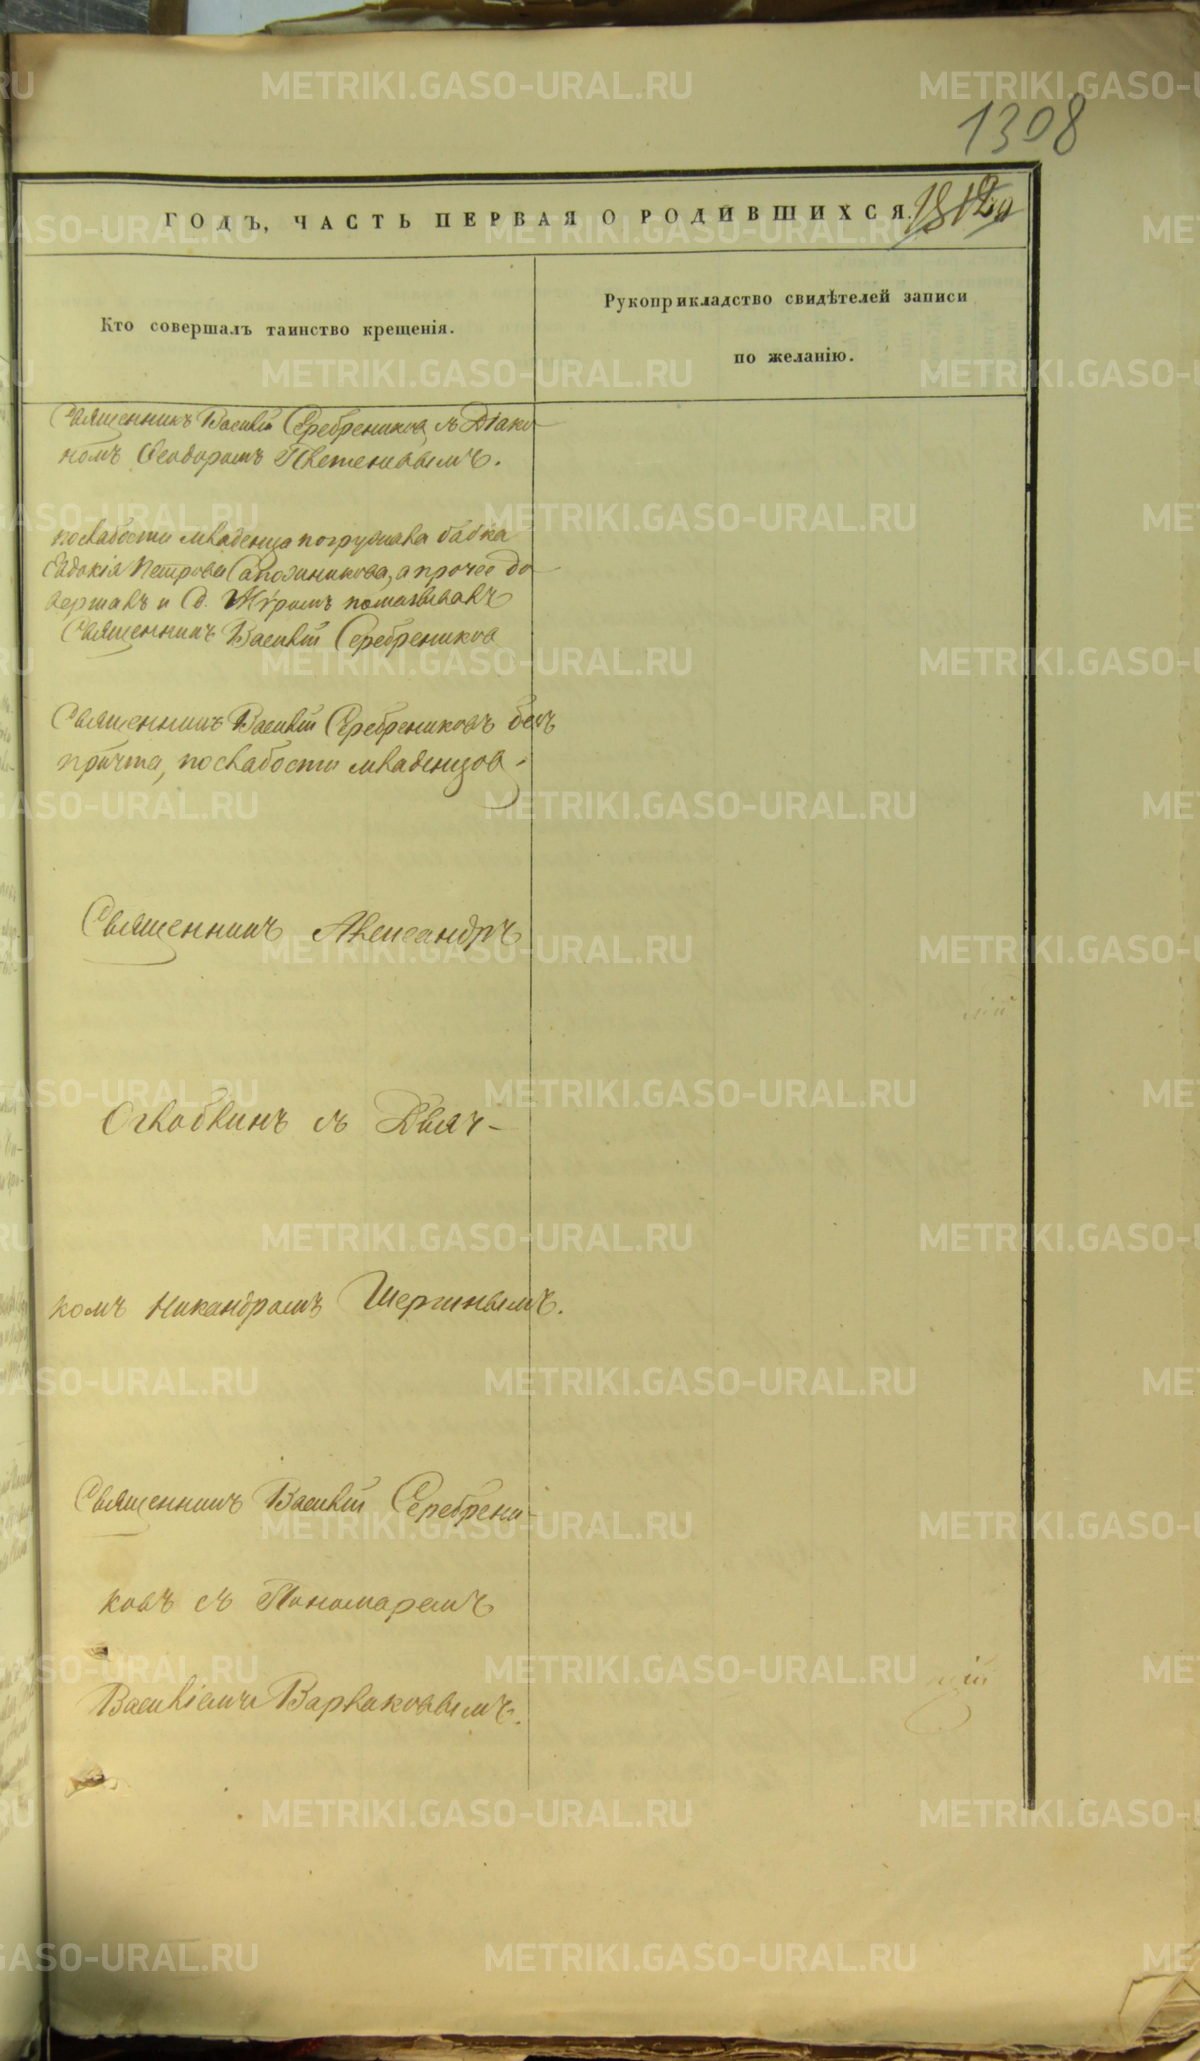 1308
ГОДЪ, ЧАСТЬ ПЕРВАЯ О РОДИВШИХСЯ.
Кто совершалъ таинство крещенія.
Рукоприкладство свидѣтелей записи
по желанію.
Священникъ Василій Серебрениковъ съ Діако-
номъ Ѳеодоромъ
по слабости младенца погружала бабка
Евдокія Петрова Сапожникова, а прочее до
вершалъ и С. Мѵромъ помазывалъ
Священникъ Василій Серебрениковъ
Священникъ Василій Серебрениковъ безъ
причта, по слабости младенцовъ.
Священникъ Александръ
Оглоблинъ съ Дьяч-
комъ Никандромъ Шергинымъ.
Священникъ Василій Серебрени-
ковъ съ Пономаремъ
Василіемъ Варлаковымъ.
METRIKI.GASO-URAL.RU